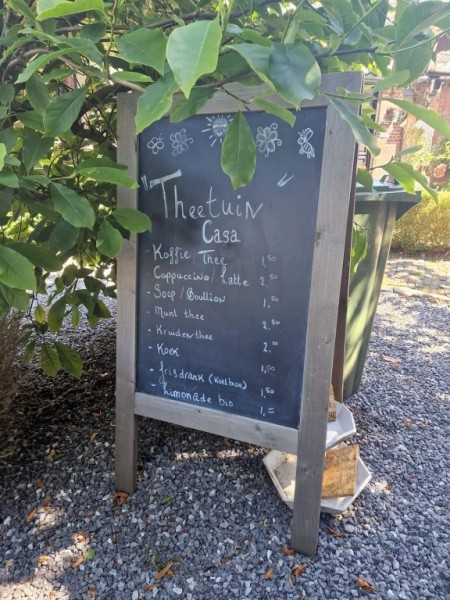 "Theetuin"
Casa
Koffie Thee 1,50
- Cappuccino / Latte 2,50
- Soep / Boullion 1,50
- Munt thee 2,50
- Kruidenthee 2,"
- Koek 1,00
- frisdrank (Koelbox) 1,50
- Limonade bio 1,=